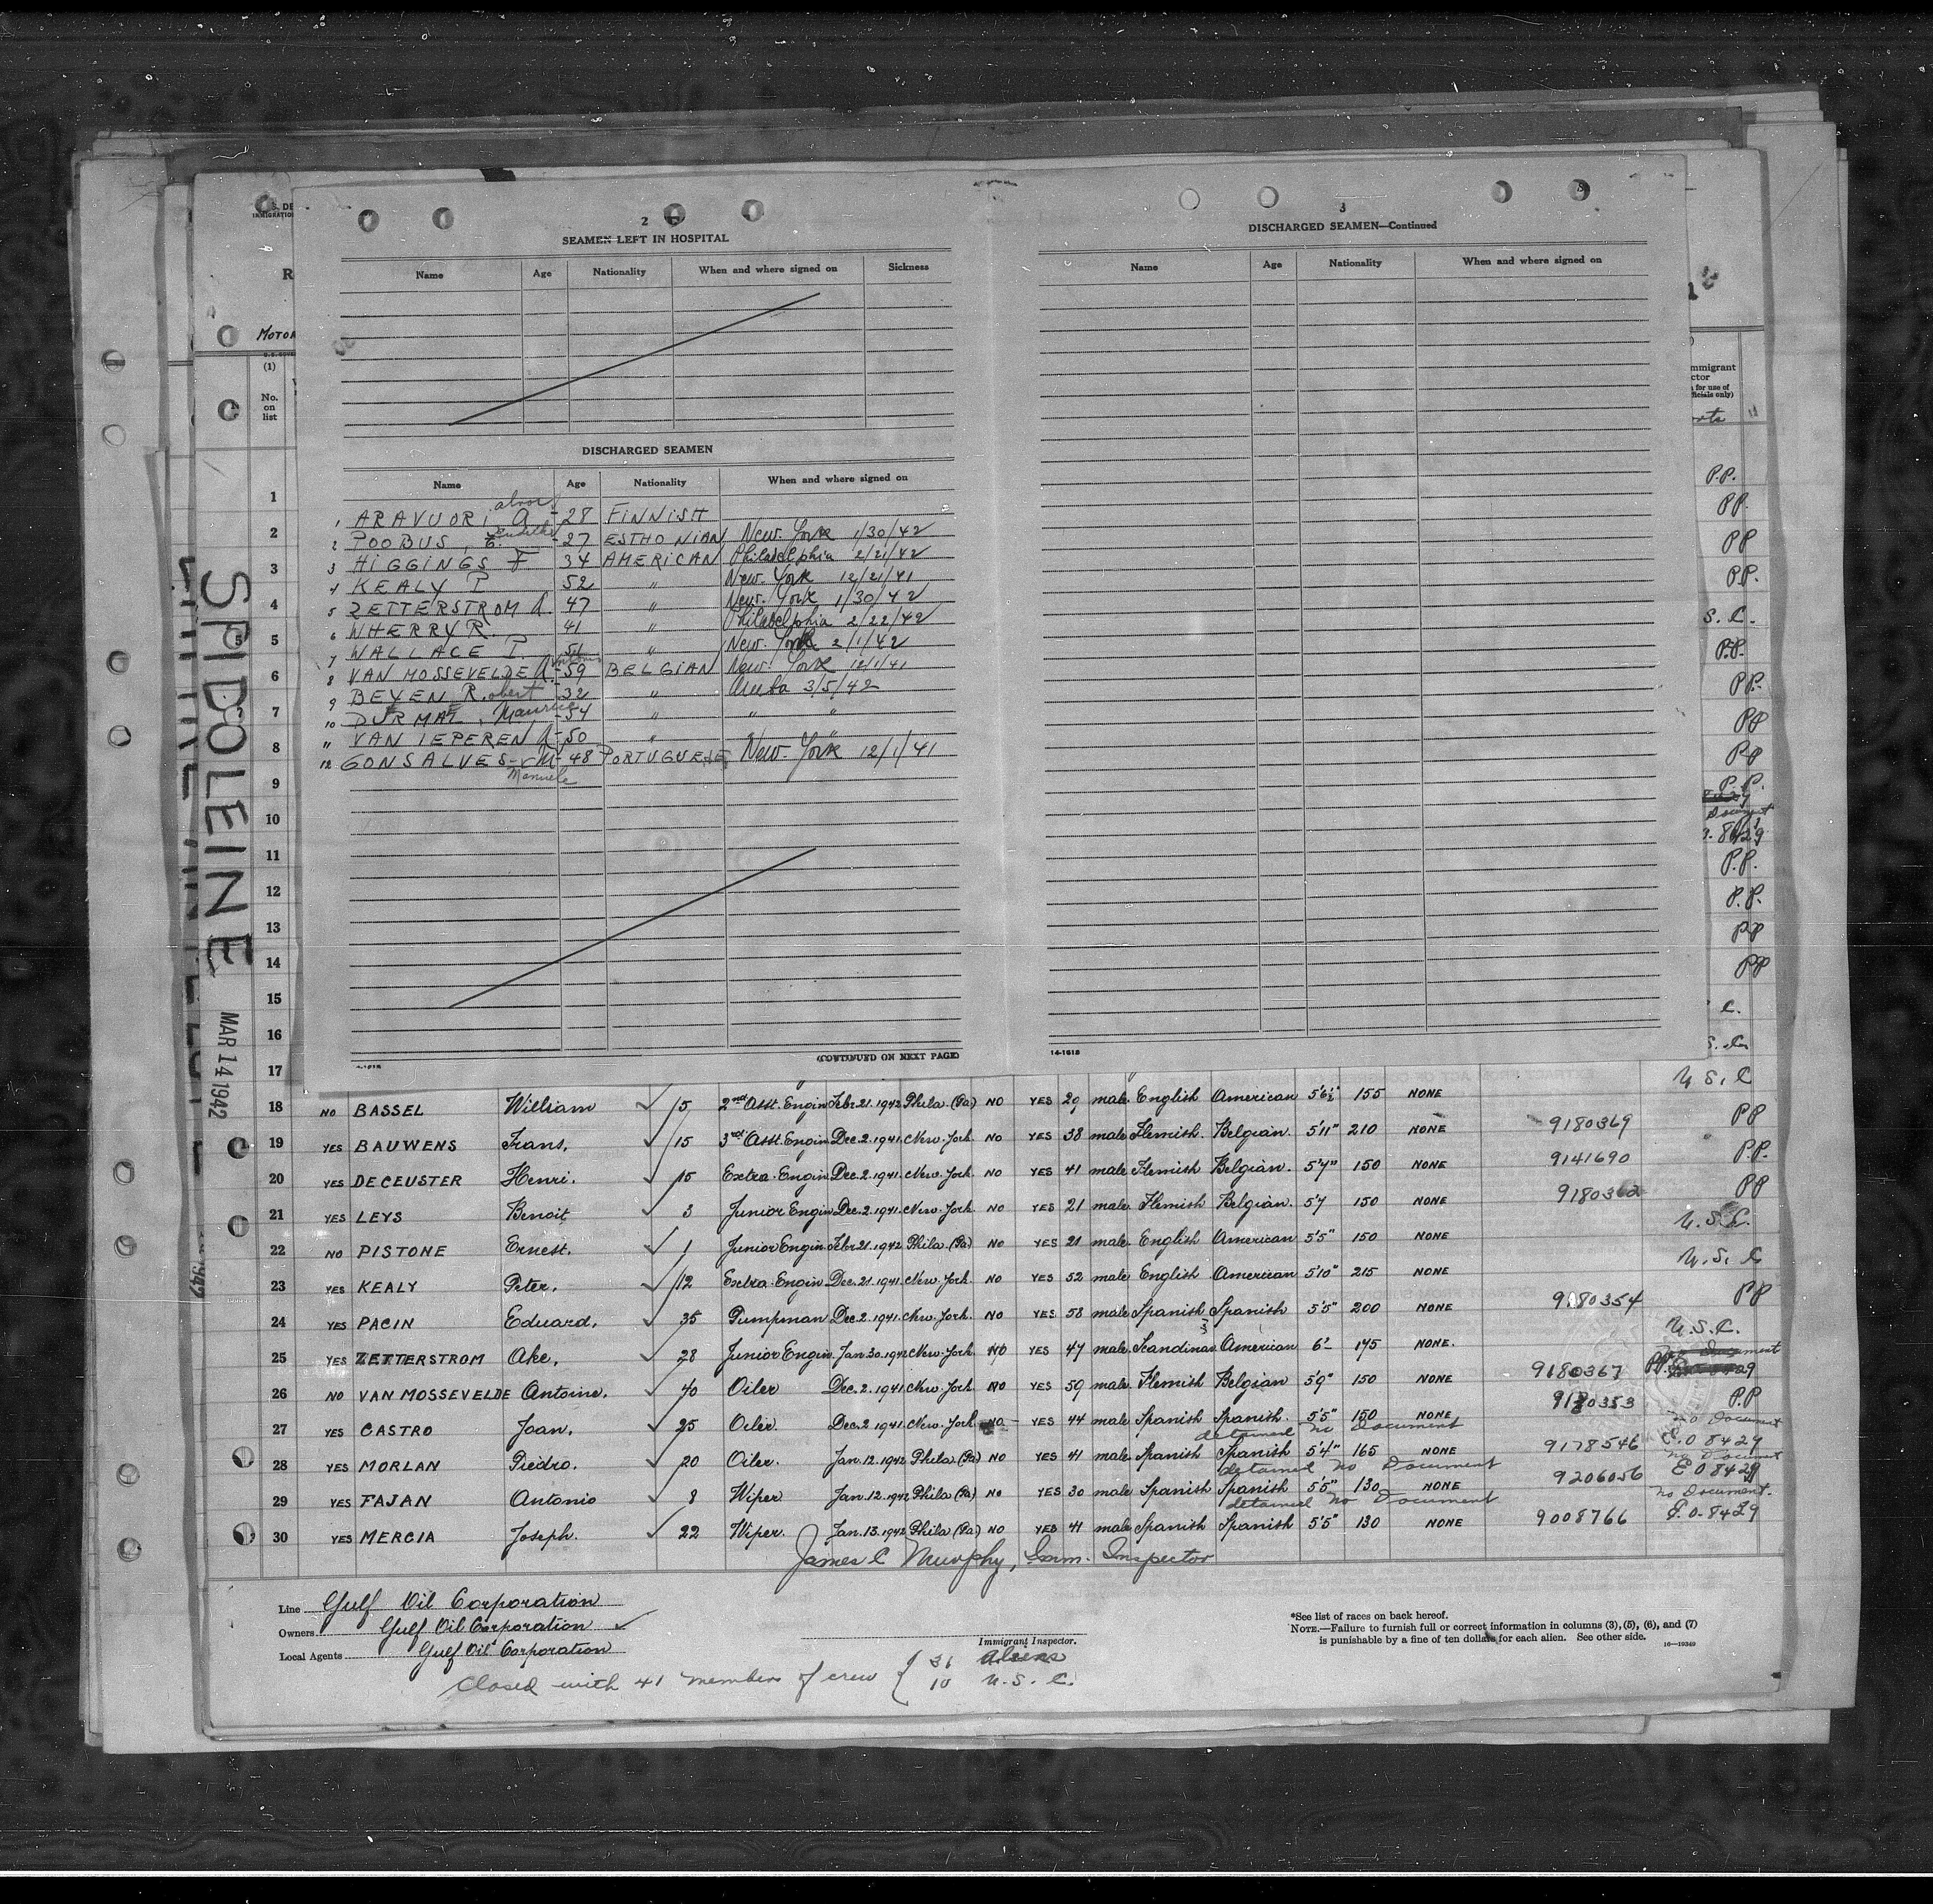 2
SEAMEN LEFT IN HOSPITAL
Name Age Nationality When and where signed on Sickness
DISCHARGED SEAMEN
Name Age Nationality When and where signed on
1 ARAVUORI, A 28 FINNISH
2 POOBUS, E. 27 ESTHONIAN New. York 1/30/42
3 HIGGINGS F 34 AMERICAN Philadelphia 2/21/42
4 KEALY P 52 " New. York 12/21/41
5 ZETTERSTROM A. 47 " New. York 1/30/42
6 WHERRY R. 41 " Philadelphia 2/22/42
7 WALLACE T. " New. York 2/1/42
8 VAN MOSSEVELDE A. 59 BELGIAN New. York 12/1/41
9 BEYEN Robert 32 " Aruba 3/5/42
10 DURMAE, Maurice 54 " " "
11 VAN IEPEREN A 50 " "
12 GONSALVES M 48 PORTUGUESE New. York 12/1/41
Manuele
(CONTINUED ON NEXT PAGE)
3
DISCHARGED SEAMEN—Continued
Name Age Nationality When and where signed on
14-1618
MOTOR
(1)
No.
on
list
1
2
3
4
5
6
7
8
9
10
11
12
13
14
15
16
17
SPIDOLEINE
MAR 14 1942
P.P.
PP.
PP
P.P.
S. C.
P.P.
PP.
PP
PP
P.P.
P.P.
P.P.
PP
PP
18 NO BASSEL William 5 2nd Asst. Engin Febr. 21. 1942 Phila. (Pa) NO YES 20 male English American 5'6½" 155 NONE U.S.C
19 YES BAUWENS Frans, 15 3rd Asst. Engin Dec. 2. 1941. New. York NO YES 38 male Flemish. Belgian. 5'11" 210 NONE 9180369 PP
20 YES DECEUSTER Henri. 15 Extra. Engin Dec. 2. 1941. New. York. NO YES 41 male Flemish Belgian. 5'7" 150 NONE 9141690 P.P.
21 YES LEYS Benoit 3 Junior Engin Dec. 2. 1941. New. York NO YES 21 male Flemish Belgian. 5'7 150 NONE 9180362 PP
22 NO PISTONE Ernest. 1 Junior Engin Febr. 21. 1942 Phila. (Pa) NO YES 21 male English American 5'5" 150 NONE U.S.C.
23 YES KEALY Peter. 12 Extra. Engin Dec. 21. 1941. New. York. NO YES 52 male English American 5'10" 215 NONE U.S.C
24 YES PACIN Eduard, 35 Pumpman Dec. 2. 1941. New. York. NO YES 58 male Spanish Spanish 5'5" 200 NONE 9180354 PP
25 YES ZETTERSTROM Ake, 28 Junior Engin. Jan. 30. 1942 New. York NO YES 47 male Scandinav. American 6' 175 NONE. U.S.C.
26 NO VAN MOSSEVELDE Antoine. 40 Oiler Dec. 2. 1941. New. York NO YES 59 male Flemish Belgian 5'9" 150 NONE 9180367 PP.
27 YES CASTRO Joan. 25 Oiler. Dec. 2. 1941. New. York NO YES 44 male Spanish Spanish. 5'5" 150 NONE 9180353 P.P
detained No Document no Document
28 YES MORLAN Piedro. 20 Oiler. Jan. 12. 1942 Phila (Pa) NO YES 41 male Spanish Spanish 5'4" 165 NONE 9178546 E.O 8429
detained No Document no Document
29 YES FAJAN Antonio 8 Wiper Jan. 12. 1942 Phila (Pa) NO YES 30 male Spanish Spanish 5'5" 130 NONE 9206056 E O 8429
detained No Document no Document.
30 YES MERCIA Joseph. 22 Wiper. Jan. 13. 1942 Phila (Pa) NO YES 41 male Spanish Spanish 5'5" 130 NONE 9008766 E.O-8429
James C Murphy, Imm. Inspector
Line Gulf Oil Corporation
Owners Gulf Oil Corporation
Local Agents Gulf Oil Corporation
Immigrant Inspector.
*See list of races on back hereof.
NOTE.—Failure to furnish full or correct information in columns (3), (5), (6), and (7)
is punishable by a fine of ten dollars for each alien. See other side. 16—19349
Closed with 41 members of crew { 31 Aliens
10 U.S.C.